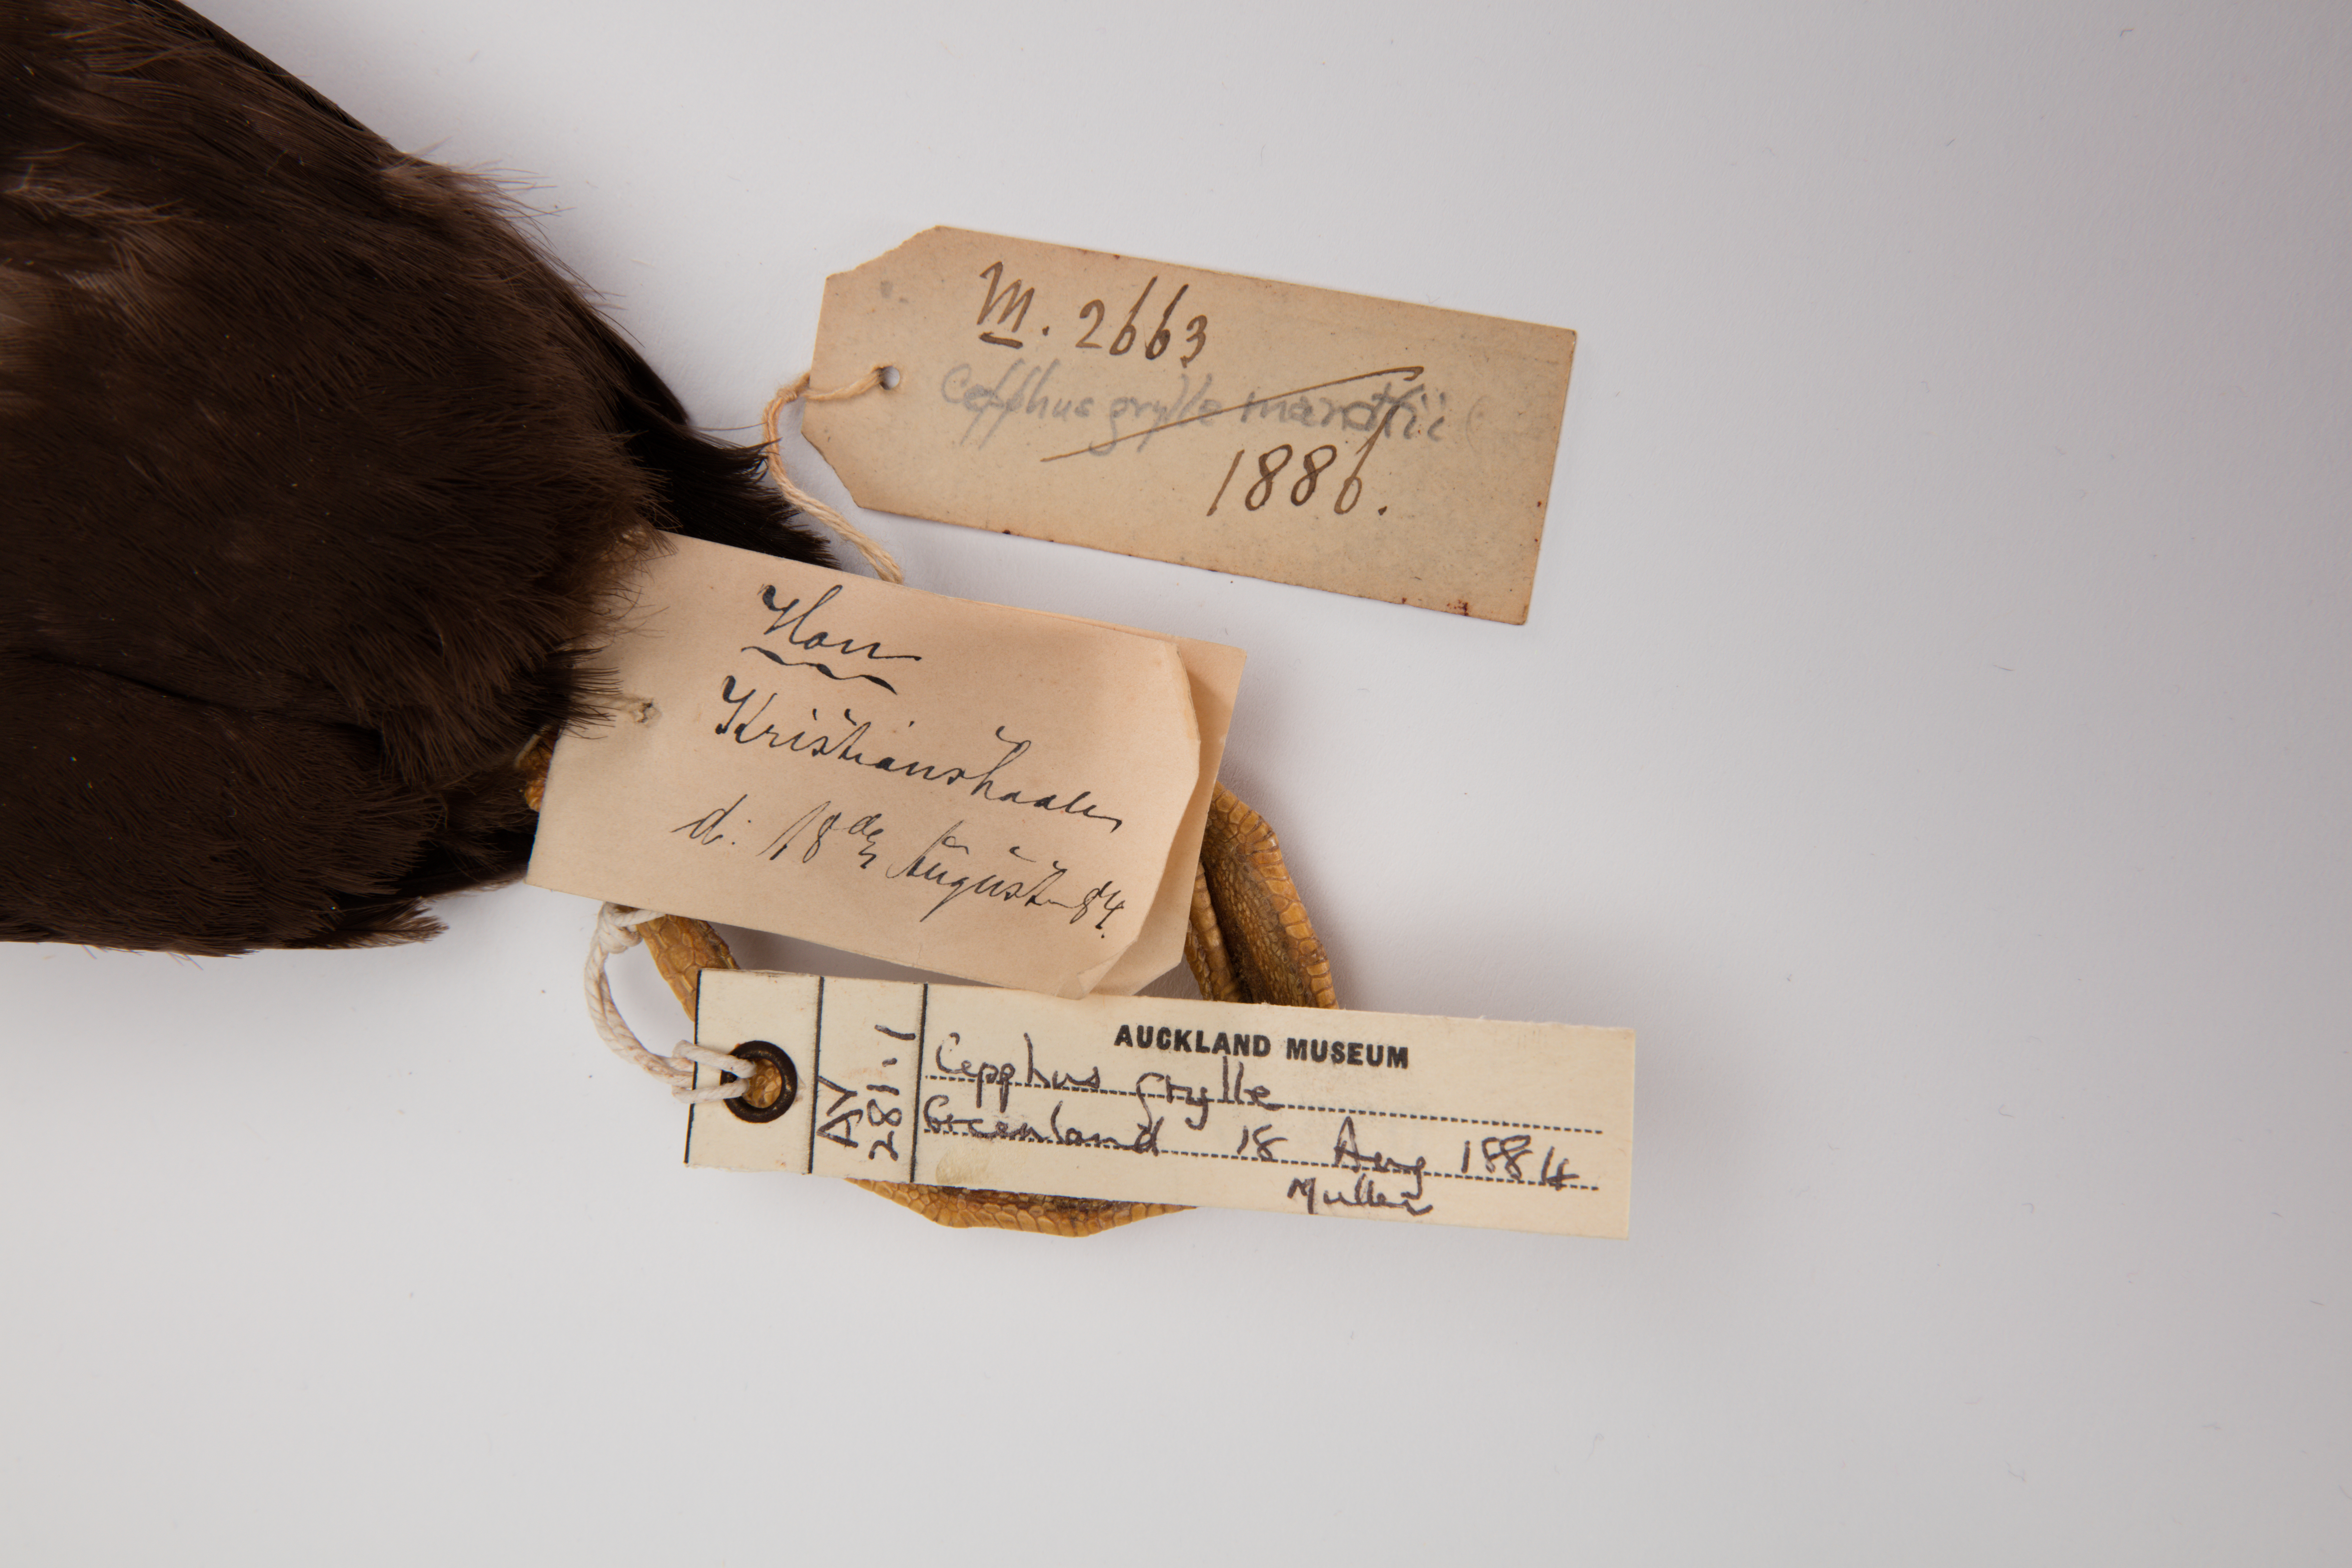 M. 2663
Cepphus grylle mandtii
1886.
Han
Kristianshaab
d: 18de August 84.
AUCKLAND MUSEUM
AV
281.1
Cepphus grylle
Greenland 18 Aug 1884
Muller